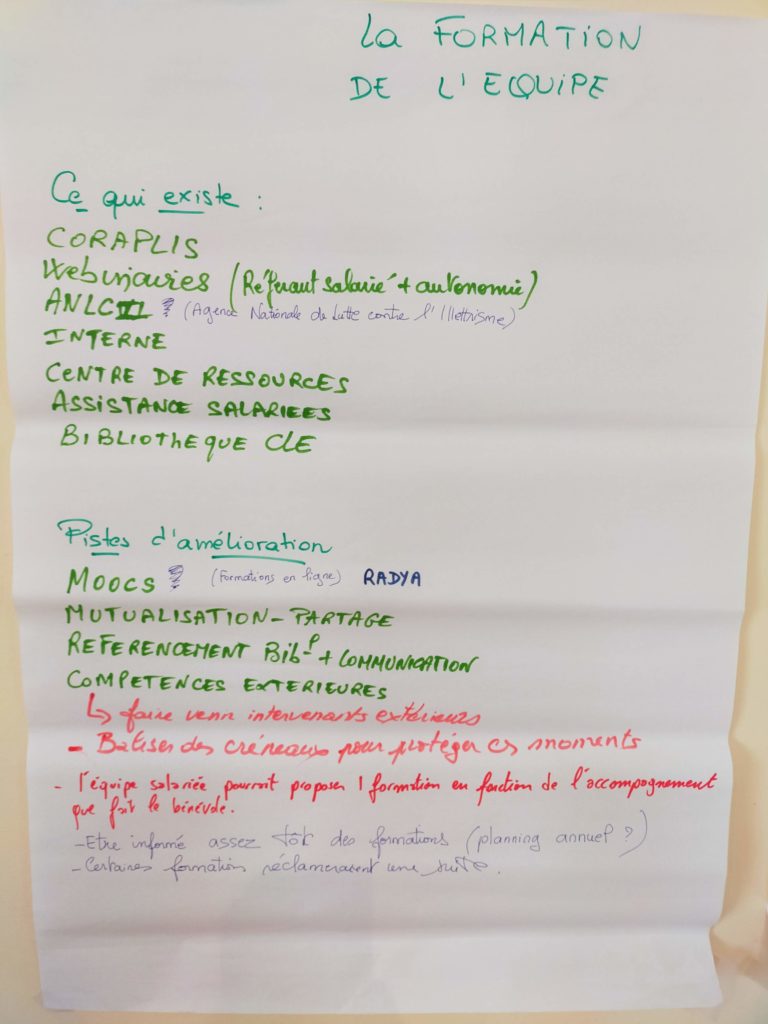 La FORMATION
DE L'EQUIPE
Ce qui existe :
CORAPLIS
Webinaires (Référant salarié + autonomie)
ANLCI ? (Agence Nationale de Lutte contre l'Illettrisme)
INTERNE
CENTRE DE RESSOURCES
ASSISTANCE SALARIEES
BIBLIOTHEQUE CLE
Pistes d'amélioration
MOOCS ? (Formations en ligne) RADYA
MUTUALISATION - PARTAGE
REFERENCEMENT + COMMUNICATION
COMPETENCES EXTERIEURES
↳ faire venir intervenants extérieurs
- Baliser des créneaux pour protéger ces moments
- l'équipe salariée pourrait proposer 1 formation en fonction de l'accompagnement
que fait le bénévole.
- Etre informé assez tôt des formations (planning annuel ?)
- Certaines formation réclameraient une suite.